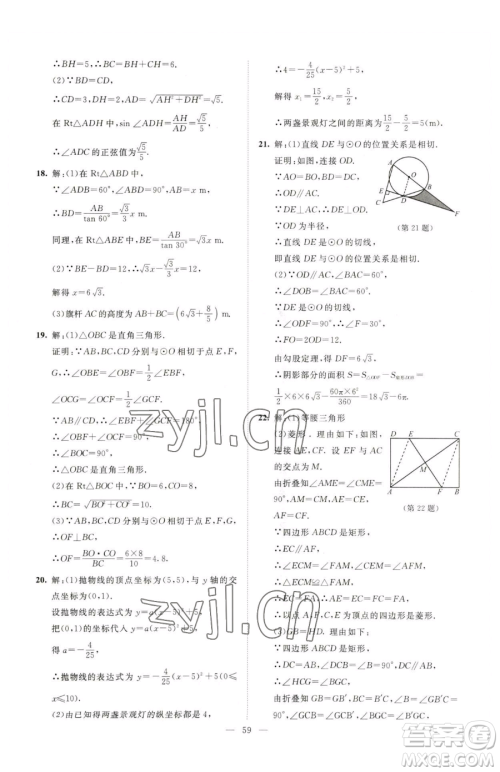 ∴BH=5,∴BC=BH+CH=6.
(2)∵BD=CD,
∴CD=3,DH=2,AD=√(AH²+DH²)=√5.
在 Rt△ADH 中,sin∠ADH=AH/AD=√5/5,
∴∠ADC 的正弦值为√5/5.
18. 解:(1)在 Rt△ABD 中,
∵∠ADB=60°,∠ABD=90°,AB=x m,
∴BD=AB/tan 60°=√3/3 x m.
同理,在 Rt△ABE 中,BE=AB/tan 30°=√3x m.
(2)∵BE-BD=12,∴√3x-√3/3 x=12,
解得 x=6√3.
(3)旗杆 AC 的高度为 AB+BC=(6√3+8/5) m.
19. 解:(1)△OBC 是直角三角形.
证明:∵AB,BC,CD 分别与⊙O 相切于点 E,F,
G,∴∠OBE=∠OBF=1/2∠EBF,
∠OCG=∠OCF=1/2∠GCF.
∵AB∥CD,∴∠EBF+∠GCF=180°,
∴∠OBF+∠OCF=90°,
∴∠BOC=90°,
∴△OBC 是直角三角形.
(2)∵在 Rt△BOC 中,BO=6,CO=8,
∴BC=√(BO²+CO²)=10.
(3)∵AB,BC,CD 分别与⊙O 相切于点 E,F,G,
∴OF⊥BC,
∴OF=BO·CO/BC=6×8/10=4.8.
20. 解:(1)抛物线的顶点坐标为(5,5),与 y 轴的交
点坐标为(0,1).
设抛物线的表达式为 y=a(x-5)²+5,
把(0,1)的坐标代入 y=a(x-5)²+5,
得 a=-4/25,
∴抛物线的表达式为 y=-4/25(x-5)²+5(0≤
x≤10).
(2)由已知得两盏景观灯的纵坐标都是 4,
∴4=-4/25(x-5)²+5,
解得 x₁=15/2,x₂=5/2,
∴两盏景观灯之间的距离为15/2-5/2=5(m).
21. 解:(1)直线 DE 与⊙O 的位置关系是相切.
证明:如图,连接 OD.
∵AO=BO,BD=CD,
∴OD∥AC.
∵DE⊥AC,
∴DE⊥OD.
∴直线 DE 是⊙O 的切线,
即直线 DE 与⊙O 的位置关系是相切.
(第 21 题)
(2)∵OD∥AC,∠BAC=60°,
∴∠DOB=∠BAC=60°.
∵DE 是⊙O 的切线,
∴∠ODF=90°,∴∠F=30°,
∴FO=2OD=12.
由勾股定理,得 DF=6√3.
∴阴影部分的面积 S=S△ODF-S扇形OBD=
1/2×6×6√3-60π×6²/360=18√3-6π.
22. 解:(1)等腰三角形
(2)菱形.理由如下:如图,
连接 AE,CF.设 EF 与 AC
的交点为 M.
由折叠知∠AME=∠CME=
90°,AM=CM,AE=CE,
AF=CF.
(第 22 题)
∵四边形 ABCD 是矩形,
∴∠ECM=∠FAM.
∴△ECM≌△FAM,
∴CE=AF,∴AE=EC=CF=FA,
∴以点 A,F,C,E 为顶点的四边形是菱形.
(3)GB=HD.理由如下:
∵四边形 ABCD 是矩形,
∴AB=CD,∠HAC=∠GCA.
由折叠知∠HAC=∠GAC,∠HCA=∠GCA,
∴∠HCG=∠GAH.
由折叠知 GB=GB′,BC=B′C,HD=HD′,
AD=AD′,
∴AB′=CD′,
59
zyjl.cn
zyjl.cn
答案圈
MXQE.COM